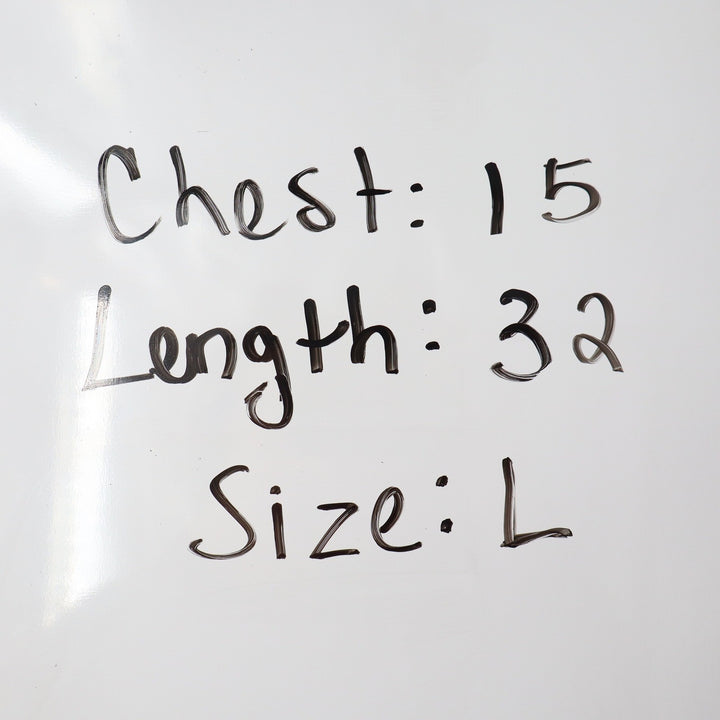 Chest: 15
Length: 32
Size: L